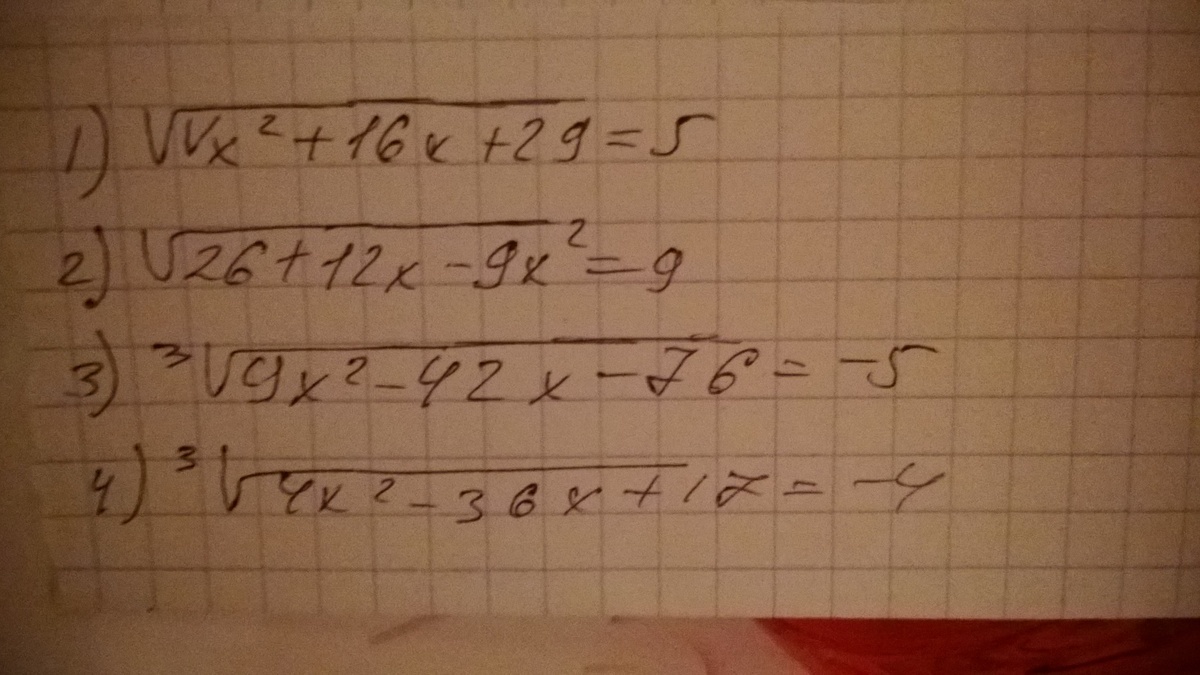 1) √(√x² + 16x + 29) = 5
2) √(26 + 12x - 9x²) = 9
3) ³√(9x² - 42x - 76) = -5
4) ³√(4x² - 36x + 17) = -4